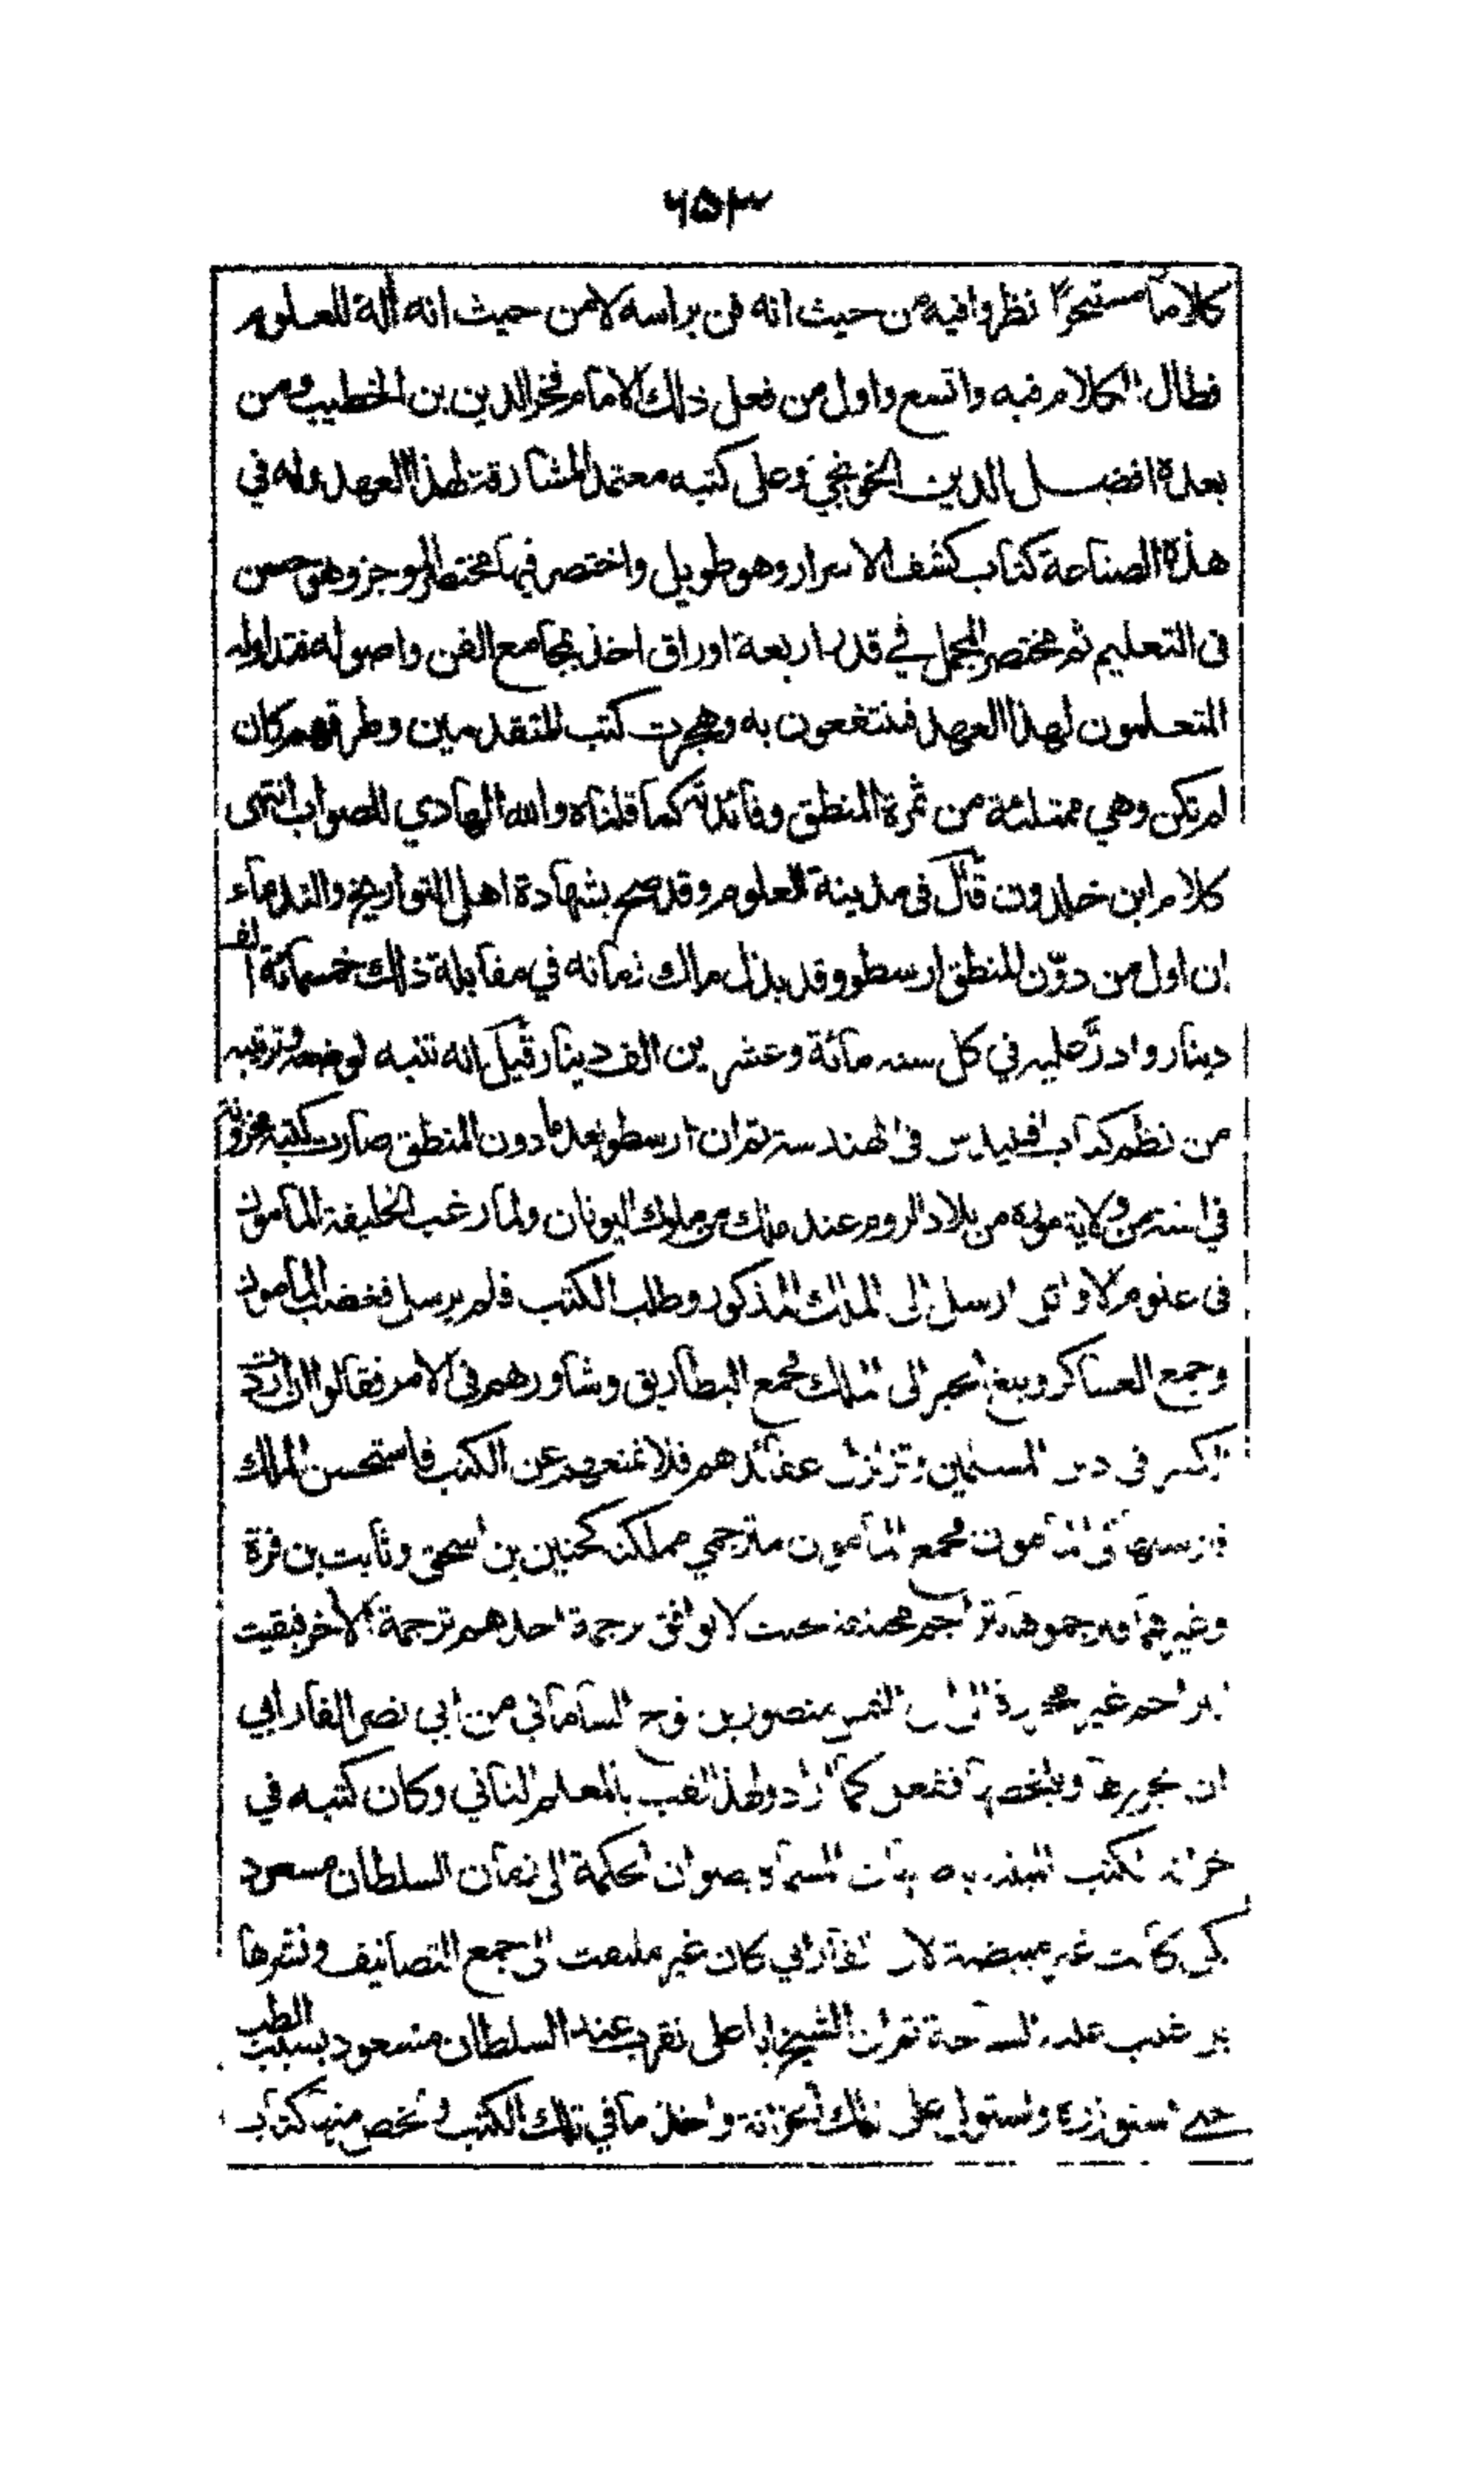 ۶۵۳
كلاما مستبحرا نظروا فيه من حيث انه فن براسه لا من حيث انه آلة للعلوم
فطال الكلام فيه واتسع واول من فعل ذلك الامام فخر الدين بن الخطيب ومن
بعده افضل الدين الخونجي وعلى كتبه معتمد المشارقة لهذا العهد وله في
هذه الصناعة كتاب كشف الاسرار وهو طويل واختصر فيها مختصر الموجز وهو حسن
فى التعليم ثم مختصر الجمل في قدر اربعة اوراق اخذ بمجامع الفن واصوله فتداوله
المتعلمون لهذا العهد فينتفعون به وهجرت كتب المتقدمين وطرقهم كان
لم تكن وهي ممتلئة من ثمرة المنطق وفائدته كما قلناه والله الهادي للصواب انتهى
كلام ابن خلدون قال فى مدينة العلوم وقد صح بشهادة اهل التواريخ والقدماء
ان اول من دوّن المنطق ارسطو وقد بذل ملك زمانه في مقابلة ذلك خمسمائة الف
دينار وادرّ عليه في كل سنه مائة وعشرين الف دينار قيل انه تنبه لوضعه وترتيبه
من نظم كتاب اقليدس فى الهندسة ثم ان ارسطو بعد ما دون المنطق صارت كتبه مخزونة
في من ولاية موره من بلاد الروم عند ملك من ملوك اليونان ولما رغب الخليفة المأمون
فى علوم الاوائل ارسل الى الملك المذكور وطلب الكتب فلم يرسل فغضب المأمون
وجمع العساكر وبلغ الخبر الى الملك فجمع البطاريق وشاورهم فى الامر فقالوا ان اردت
الكسر فى دين المسلمين وتزلزل عقائدهم فلا تمنعهم عن الكتب فاستحسن الملك
فارسلها الى المأمون فجمع المأمون مترجمي مملكته كحنين بن اسحق وثابت بن قرة
وغيرهما فترجموها بتراجم مختلفة بحيث لا يوافق ترجمة احدهم ترجمة الآخر فبقيت
التراجم غير محررة الى ان التمس منصور بن نوح السامانى من ابي نصر الفارابي
ان يحررها ويلخصها ففعل كما اراد ولهذا لقب بالمعلم الثاني وكان كتبه في
خزانة الكتب المسماة بصوان الحكمة الى زمان السلطان مسعود
لكن كانت غير مبيضة لان الفارابي كان غير ملتفت الى جمع التصانيف ونشرها
بل غلب عليه السياحة ثم ان الشيخ ابا على تقرب عند السلطان مسعود بسبب الطب
حتى استوزره واستولى على تلك الخزانة واخذ ما في تلك الكتب ولخص منها كتاب